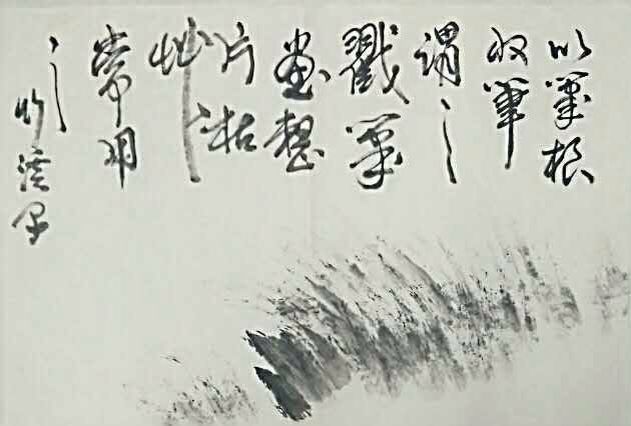 以筆根
收筆
謂之
戳筆
畫整
片枯
草
常用
之
竹溪